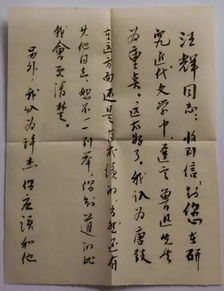 汪辉同志：收到信，知您在研
究近代文学中，选定鲁迅先生
为重点。这太好了。我认为唐弢
在这方面还是有成绩的，当然还有
其他同志，恕不一一列举，你知道的比
我会更清楚。
另外，我认为许杰，你应该和他